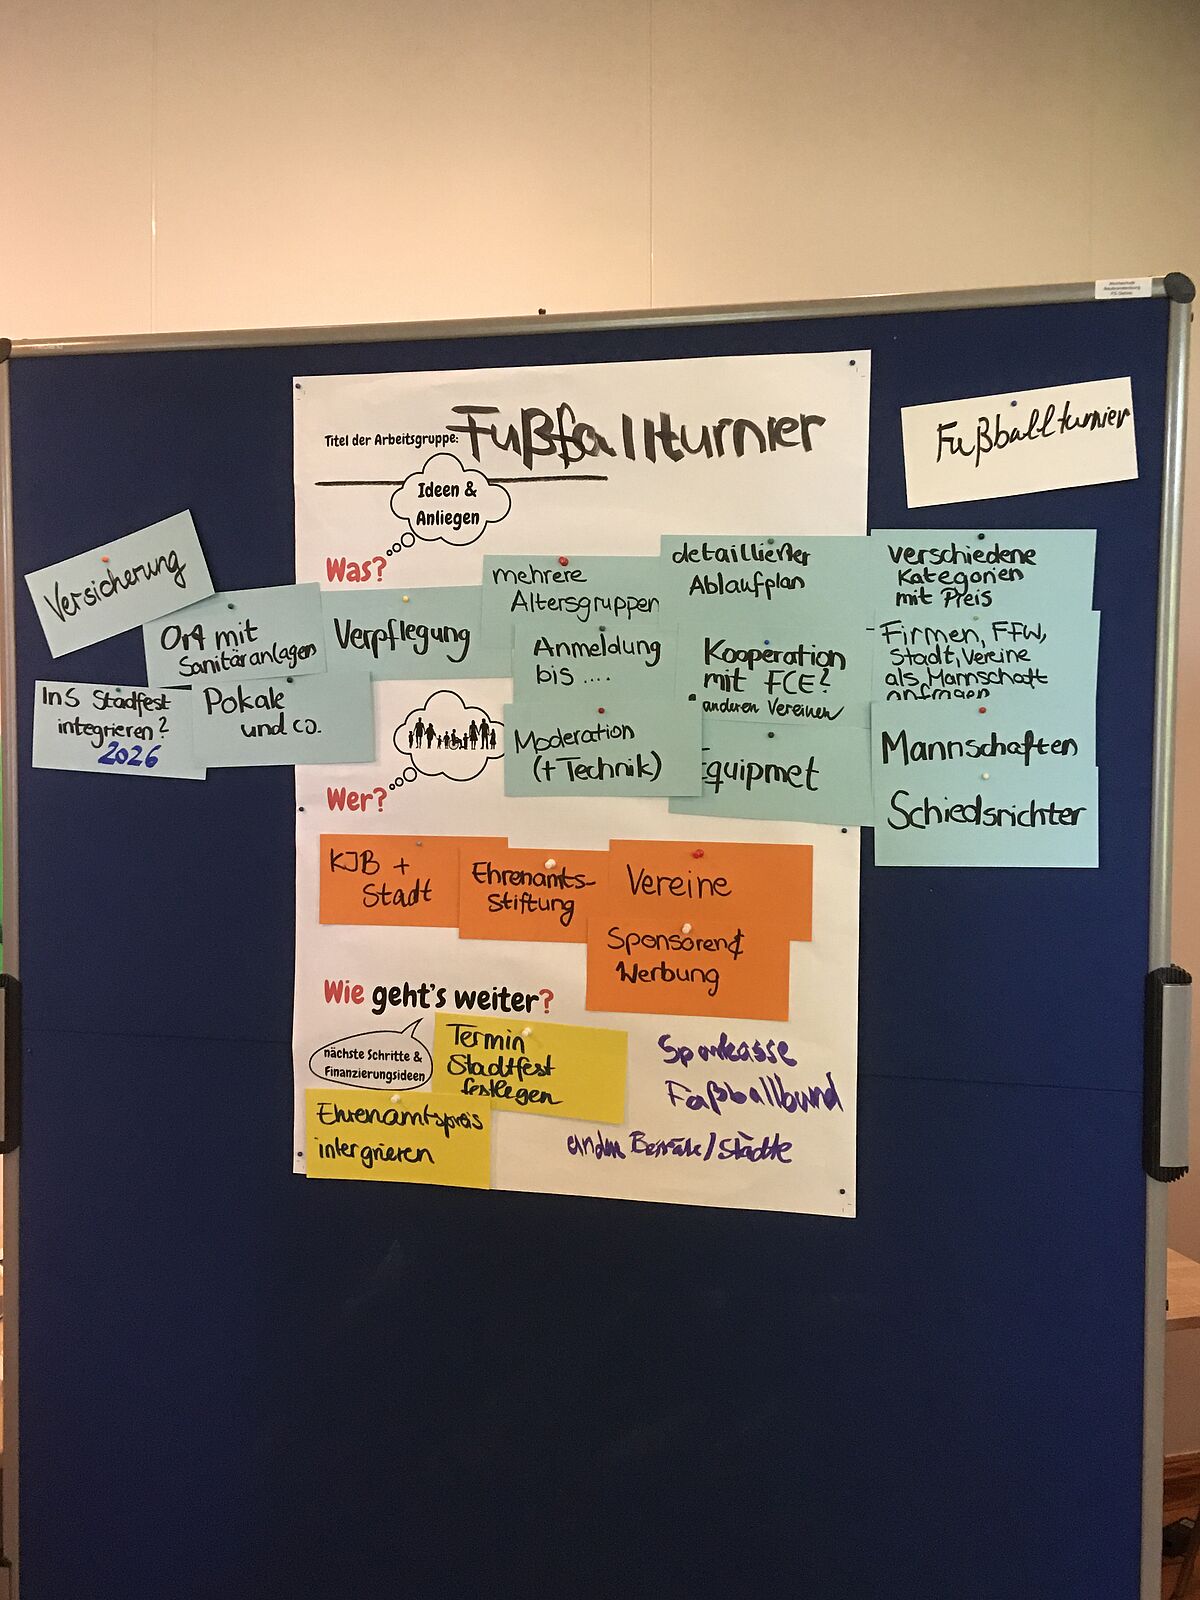 Titel der Arbeitsgruppe: Fußballturnier
Fußballturnier
Ideen &
Anliegen
Was?
Versicherung
Ort mit
Sanitäranlagen
Verpflegung
mehrere
Altersgruppen
detaillierter
Ablaufplan
verschiedene
Kategorien
mit Preis
InS Stadtfest
integrieren?
2026
Pokale
und co.
Anmeldung
bis ....
Kooperation
mit FCE?
anderen Vereinen
Firmen, FFW,
Stadt, Vereine
als Mannschaft
anfragen
Moderation
(+ Technik)
Equipmet
Mannschaften
Schiedsrichter
Wer?
KJB +
Stadt
Ehrenamts-
Stiftung
Vereine
Sponsoren &
Werbung
Wie geht's weiter?
nächste Schritte &
Finanzierungsideen
Termin
Stadtfest
festlegen
Ehrenamtspreis
intergrieren
Sparkasse
Fußballbund
/ Städte